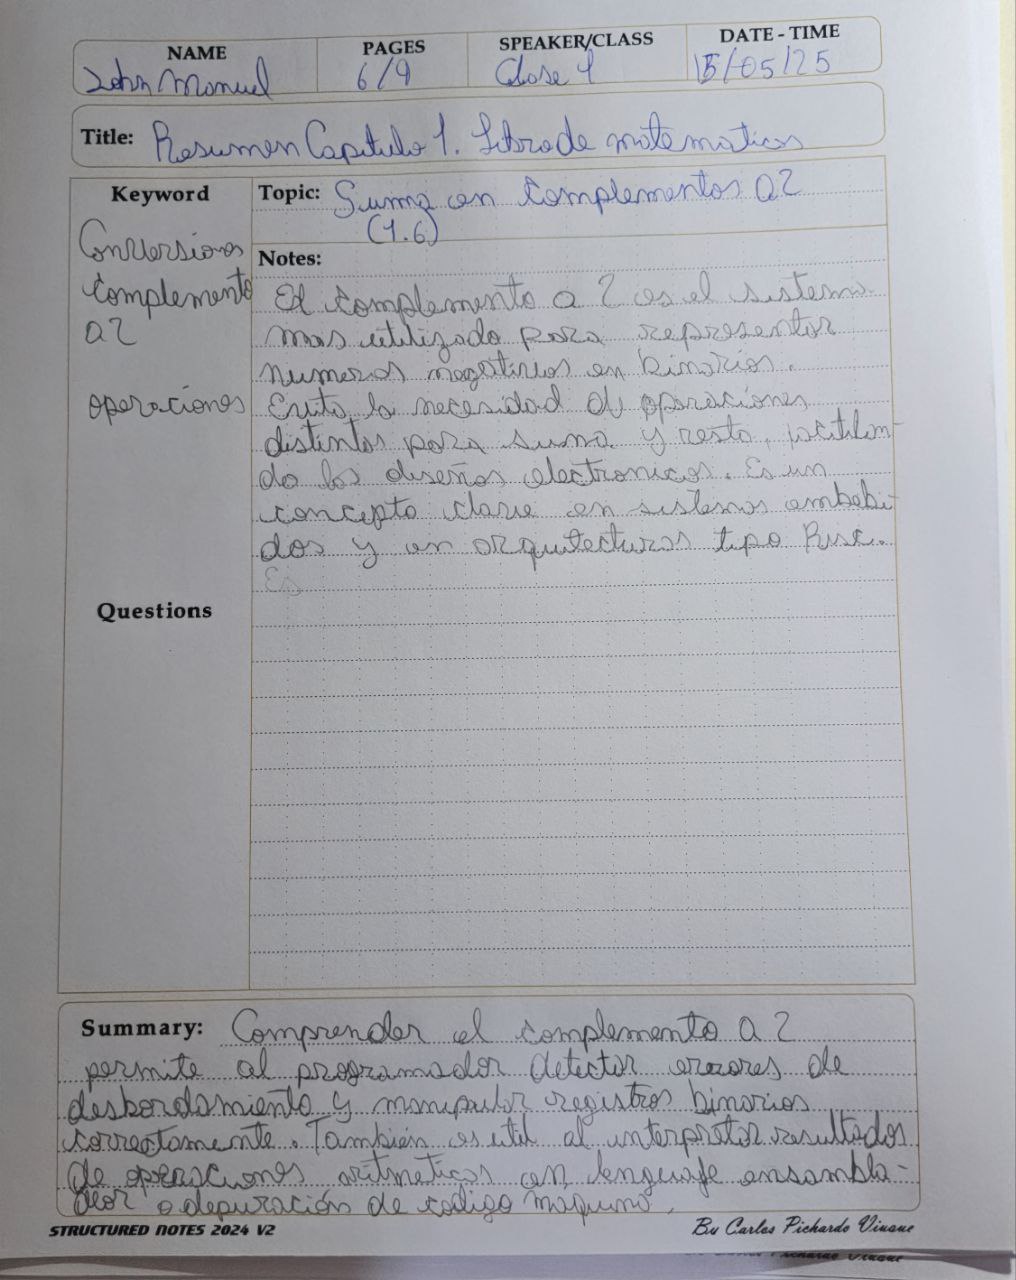 NAME PAGES SPEAKER/CLASS DATE - TIME
John Manuel 6/9 Clase 1 15/05/25
Title: Resumen Capitulo 1. Libro de matematicas
Keyword
Conversiones
Complemento
a 2
operaciones
Questions
Topic: Suma en Complementos a 2
(1.6)
Notes:
El complemento a 2 es el sistema
mas utilizado para representar
numeros negativos en binarios.
Evita la necesidad de operaciones
distintas para suma y resta, facilitan-
do los diseños electronicos. Es un
concepto clave en sistemas embebi-
dos y en arquitecturas tipo Risc.
Es
Summary: Comprender el complemento a 2
permite al programador detectar errores de
desbordamiento y manipular registros binarios
correctamente. También es util al interpretar resultados
de operaciones aritmeticas en lenguaje ensambla-
dor o depuración de codigo maquina.
STRUCTURED NOTES 2024 V2 By Carlos Pichardo Viuque